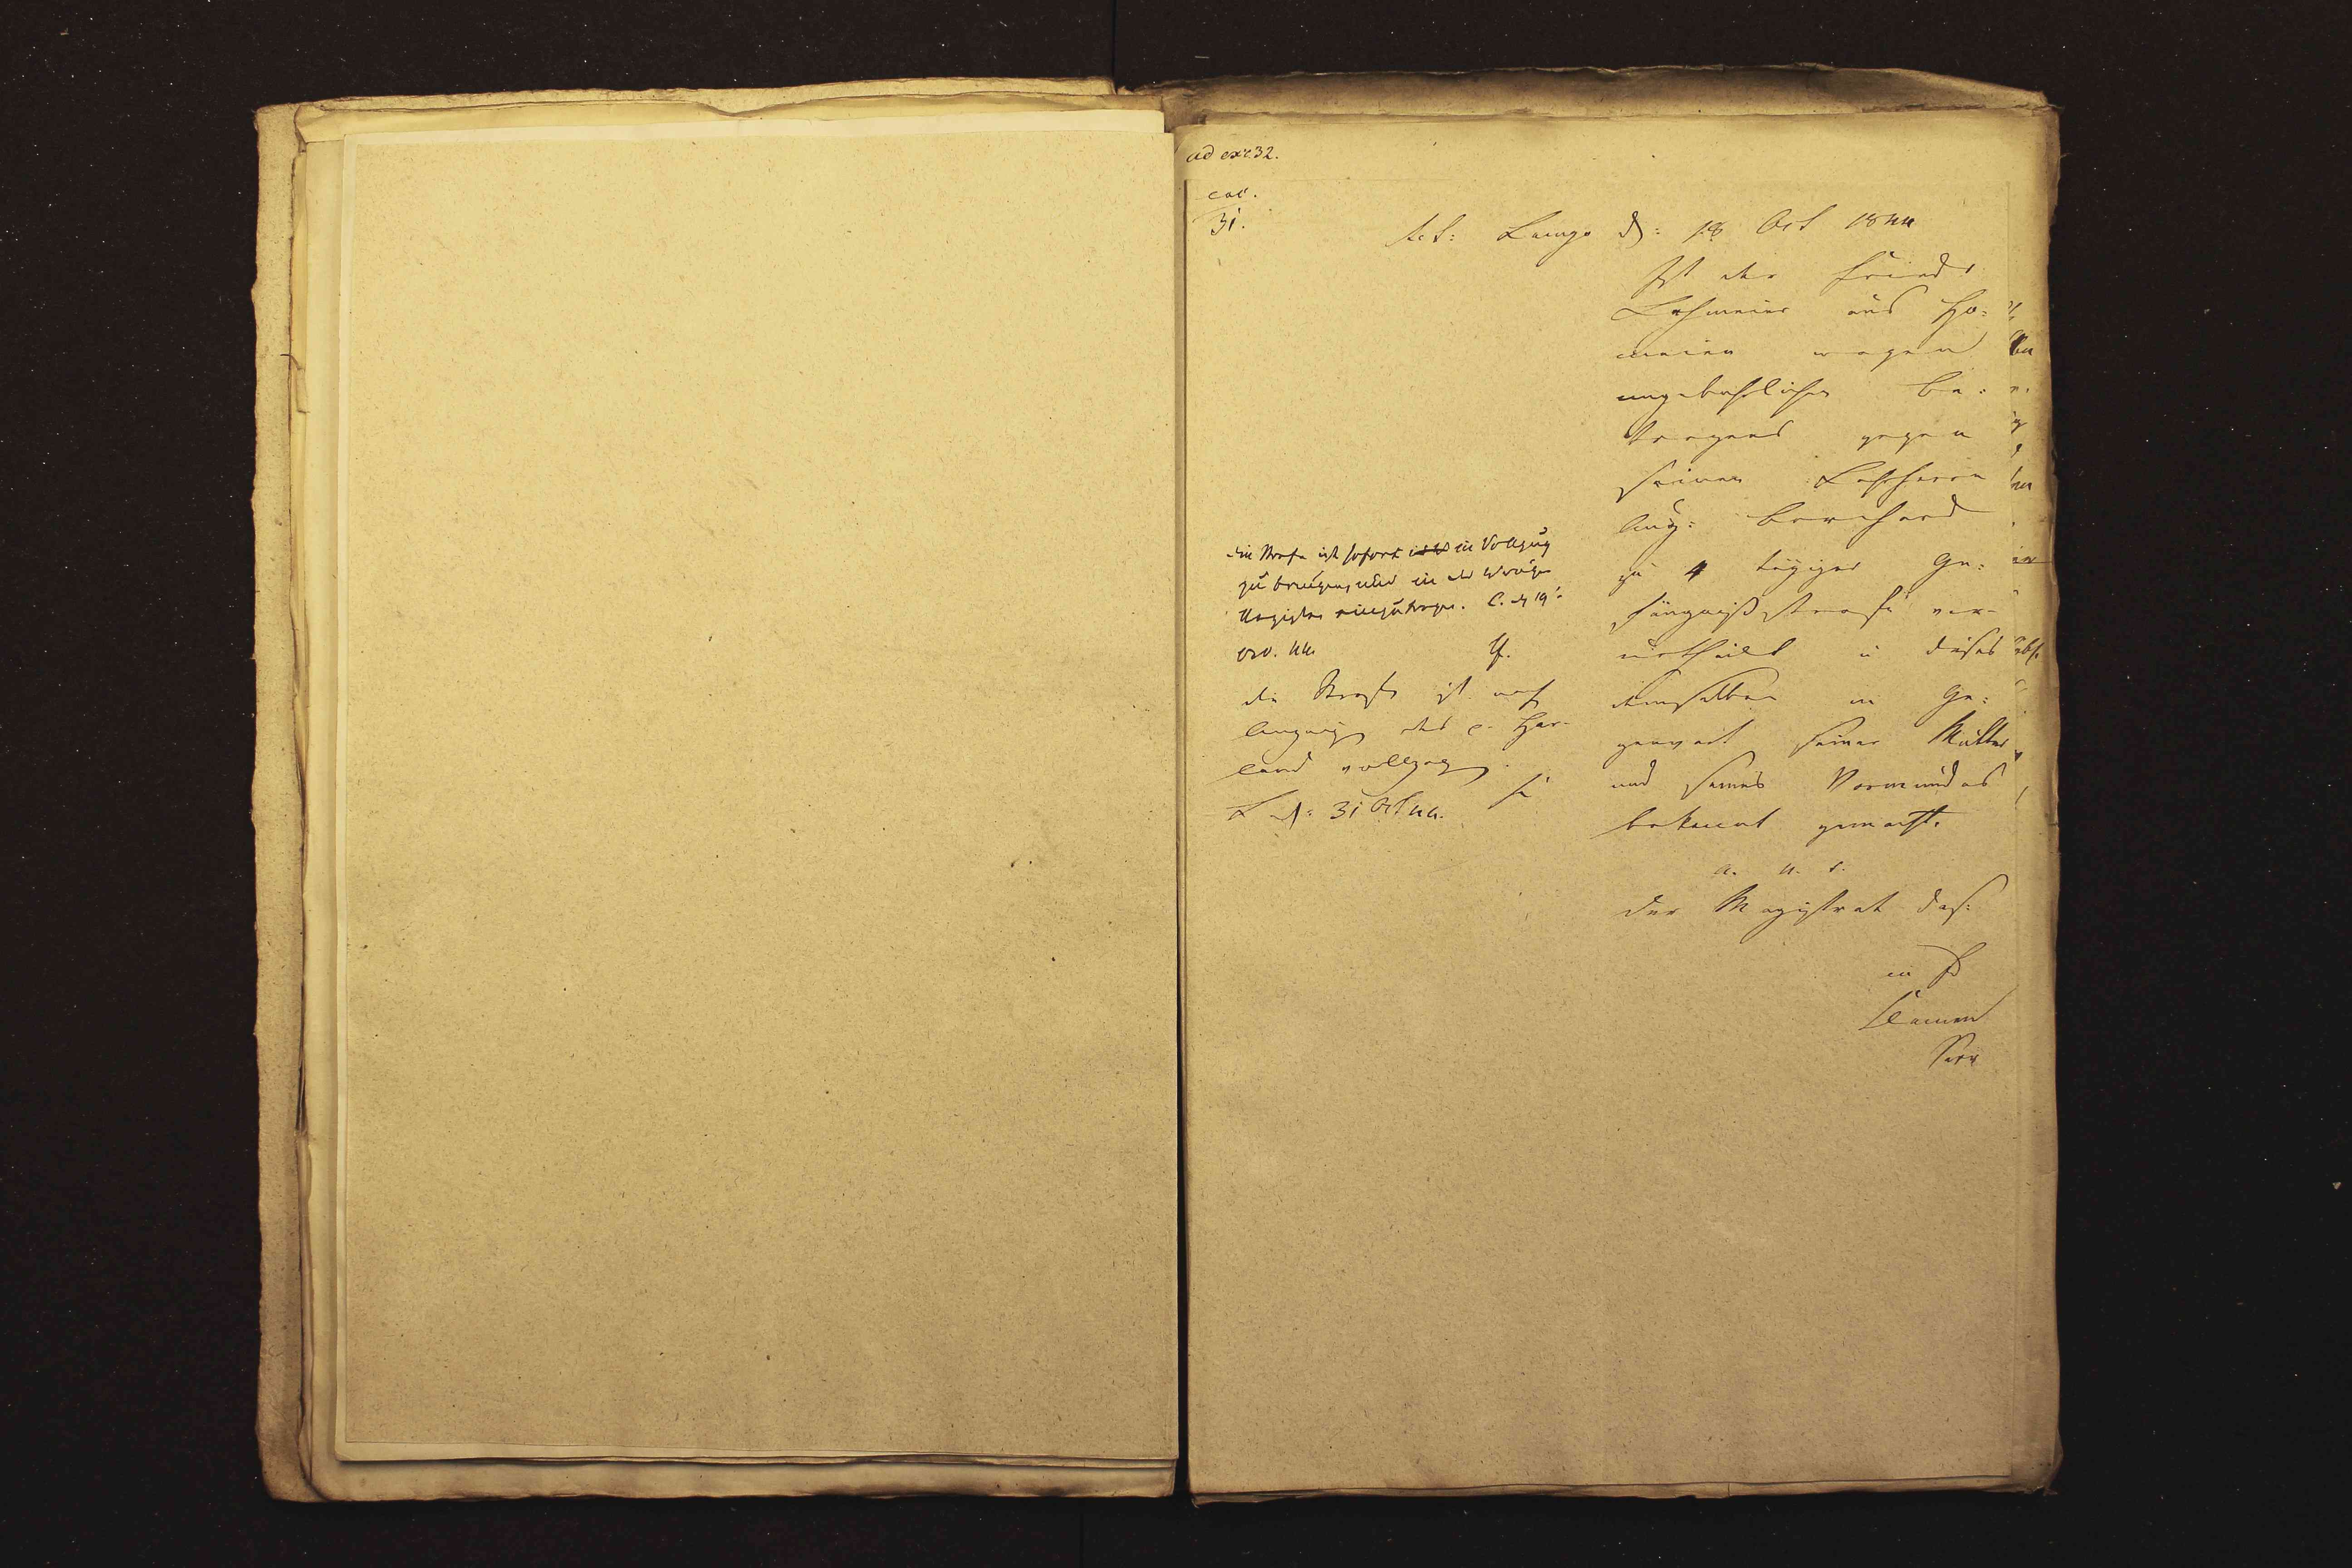 ad exc. 32.
eod.
31.
Act: Lemgo d: 18 Oct 1844
Ist der Friedr
Lohmeier aus Ho=
meien wegen
ungebührlichen Be=
tragens gegen
seinen Lehrherrn
Aug: Bernhard
zu 4 tägiger Ge=
fängnißstrafe ver-
urtheilt u dieses
demselben in Ge=
genwart seiner Mutter
und seines Vormundes
bekannt gemacht.
a. u. s.
Der Magistrat das.
in fd
Clemen
Secr
die Strafe ist sofort in Vollzug
zu bringen, und in das Wroge
Register einzutragen. C. d 19.
44.
die Strafe ist nach
des c. Har-
land vollzogen.
L d: 31 Oct 44.